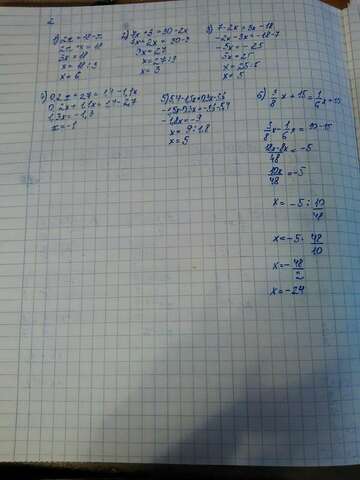 2
1) 2x = 18-x
2x + x = 18
3x = 18
x = 18:3
x = 6
2) 7x + 3 = 30-2x
7x+2x = 30-3
9x = 27
x = 27:9
x = 3
3) 7-2x = 3x-18
-2x-3x = -18-7
-5x = -25
5x = 25
x = 25:5
x = 5
0,2x+2,7 = 1,4-1,1x
0,2x + 1,1x = 1,4-2,7
1,3x = -1,3
x = -1
5)
-1,8x = -9
x = 9:1,8
x = 5
6) 3/8 x + 15 = 1/6 x + 10
3/8 x - 1/6 x = 10-15
18x-8x/48 = -5
10x/48 = -5
x = -5 : 10/48
x = -5 · 48/10
x = -48/2
x = -24